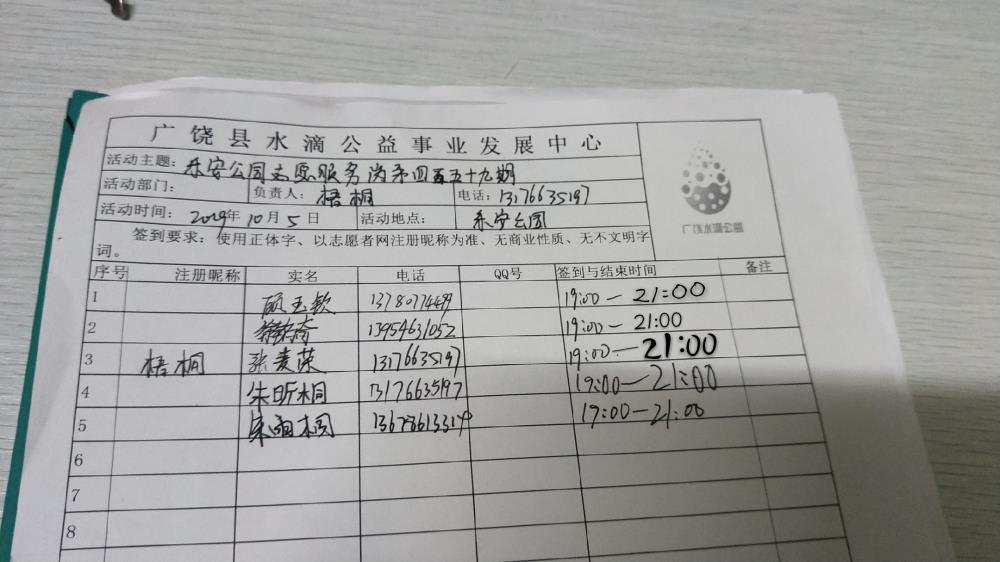 广饶县水滴公益事业发展中心
活动主题：乐安公园志愿服务岗第四百五十九期
活动部门： 负责人：梧桐 电话：13176635197
活动时间： 年10月5日 活动地点：乐安公园
签到要求：使用正体字、以志愿者网注册昵称为准、无商业性质、无不文明字
词。
广饶水滴公益
序号 注册昵称 实名 电话 QQ号 签到与结束时间 备注
1 顾玉钦 19:00—21:00
2 13954631052 19:00—21:00
3 梧桐 张麦荣 13176635197 19:00—21:00
4 朱昕桐 13176635197 19:00—21:00
5 19:00—21:00
6
7
8